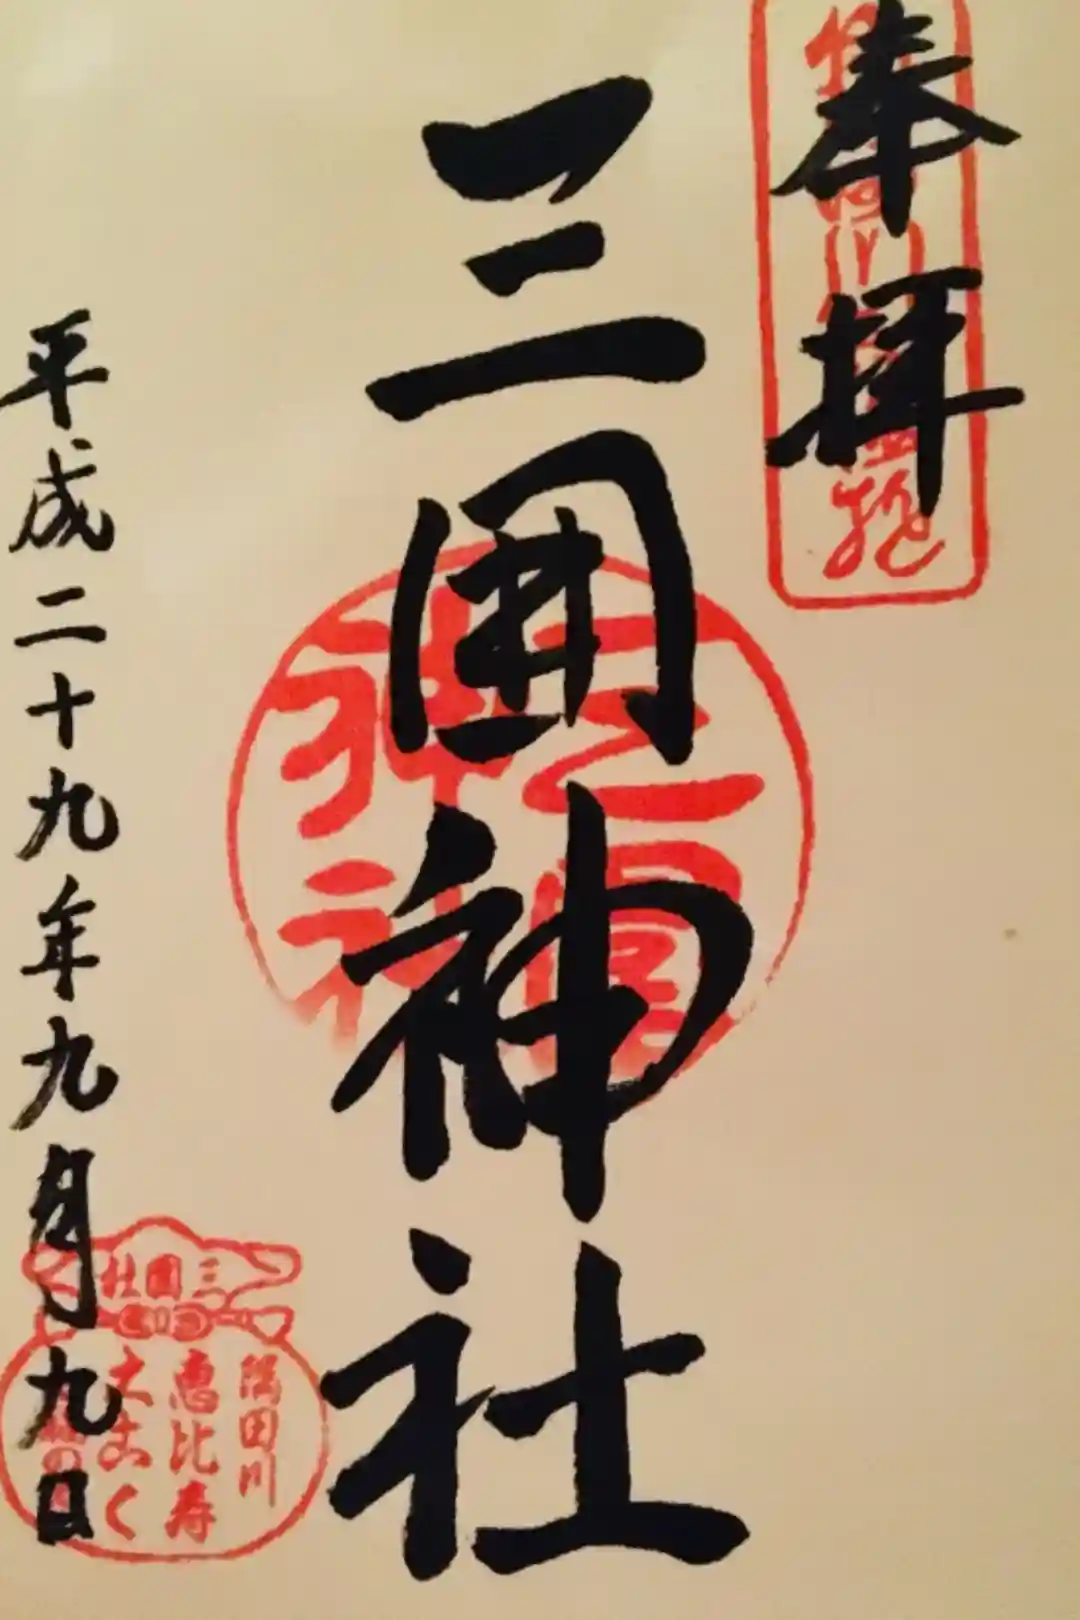 奉拝
三囲神社
三囲神社
平成二十九年九月九日
三囲社
隅田川
恵比寿
大こく